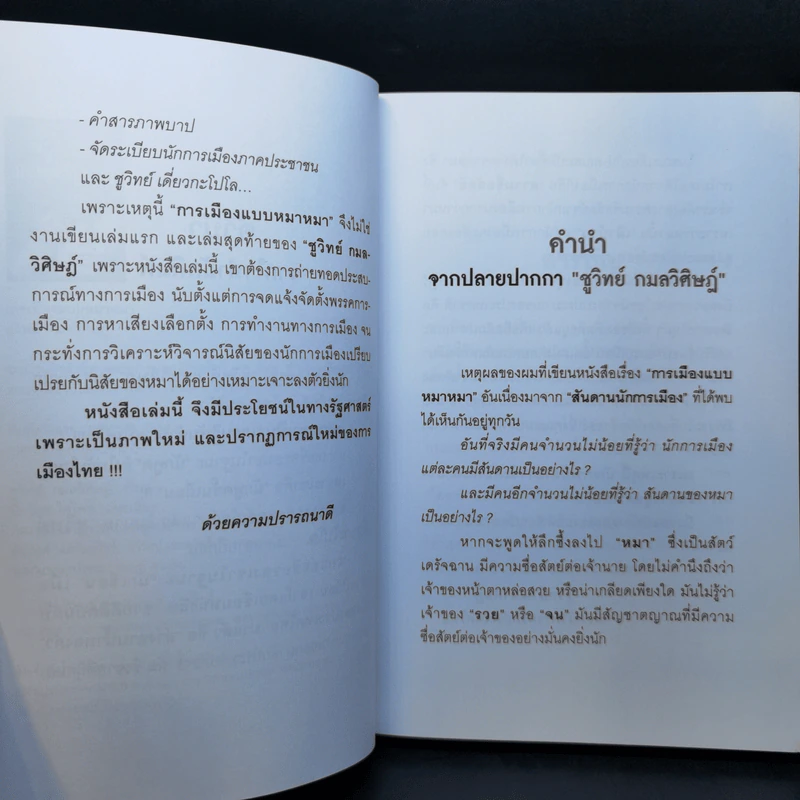 - คำสารภาพบาป
- จัดระเบียบนักการเมืองภาคประชาชน
และ ชูวิทย์ เดี่ยวกะโปโล...
เพราะเหตุนี้ "การเมืองแบบหมาหมา" จึงไม่ใช่
งานเขียนเล่มแรก และเล่มสุดท้ายของ "ชูวิทย์ กมล-
วิศิษฎ์" เพราะหนังสือเล่มนี้ เขาต้องการถ่ายทอดประสบ-
การณ์ทางการเมือง นับตั้งแต่การจดแจ้งจัดตั้งพรรคการ-
เมือง การหาเสียงเลือกตั้ง การทำงานทางการเมือง จน
กระทั่งการวิเคราะห์วิจารณ์นิสัยของนักการเมืองเปรียบ
เปรยกับนิสัยของหมาได้อย่างเหมาะเจาะลงตัวยิ่งนัก
หนังสือเล่มนี้ จึงมีประโยชน์ในทางรัฐศาสตร์
เพราะเป็นภาพใหม่ และปรากฏการณ์ใหม่ของการ
เมืองไทย !!!
ด้วยความปรารถนาดี
คำนำ
จากปลายปากกา "ชูวิทย์ กมลวิศิษฎ์"
เหตุผลของผมที่เขียนหนังสือเรื่อง "การเมืองแบบ
หมาหมา" อันเนื่องมาจาก "สันดานนักการเมือง" ที่ได้พบ
ได้เห็นกันอยู่ทุกวัน
อันที่จริงมีคนจำนวนไม่น้อยที่รู้ว่า นักการเมือง
แต่ละคนมีสันดานเป็นอย่างไร ?
และมีคนอีกจำนวนไม่น้อยที่รู้ว่า สันดานของหมา
เป็นอย่างไร ?
หากจะพูดให้ลึกซึ้งลงไป "หมา" ซึ่งเป็นสัตว์
เดรัจฉาน มีความซื่อสัตย์ต่อเจ้านาย โดยไม่คำนึงถึงว่า
เจ้าของหน้าตาหล่อสวย หรือน่าเกลียดเพียงใด มันไม่รู้ว่า
เจ้าของ "รวย" หรือ "จน" มันมีสัญชาตญาณที่มีความ
ซื่อสัตย์ต่อเจ้าของอย่างมั่นคงยิ่งนัก